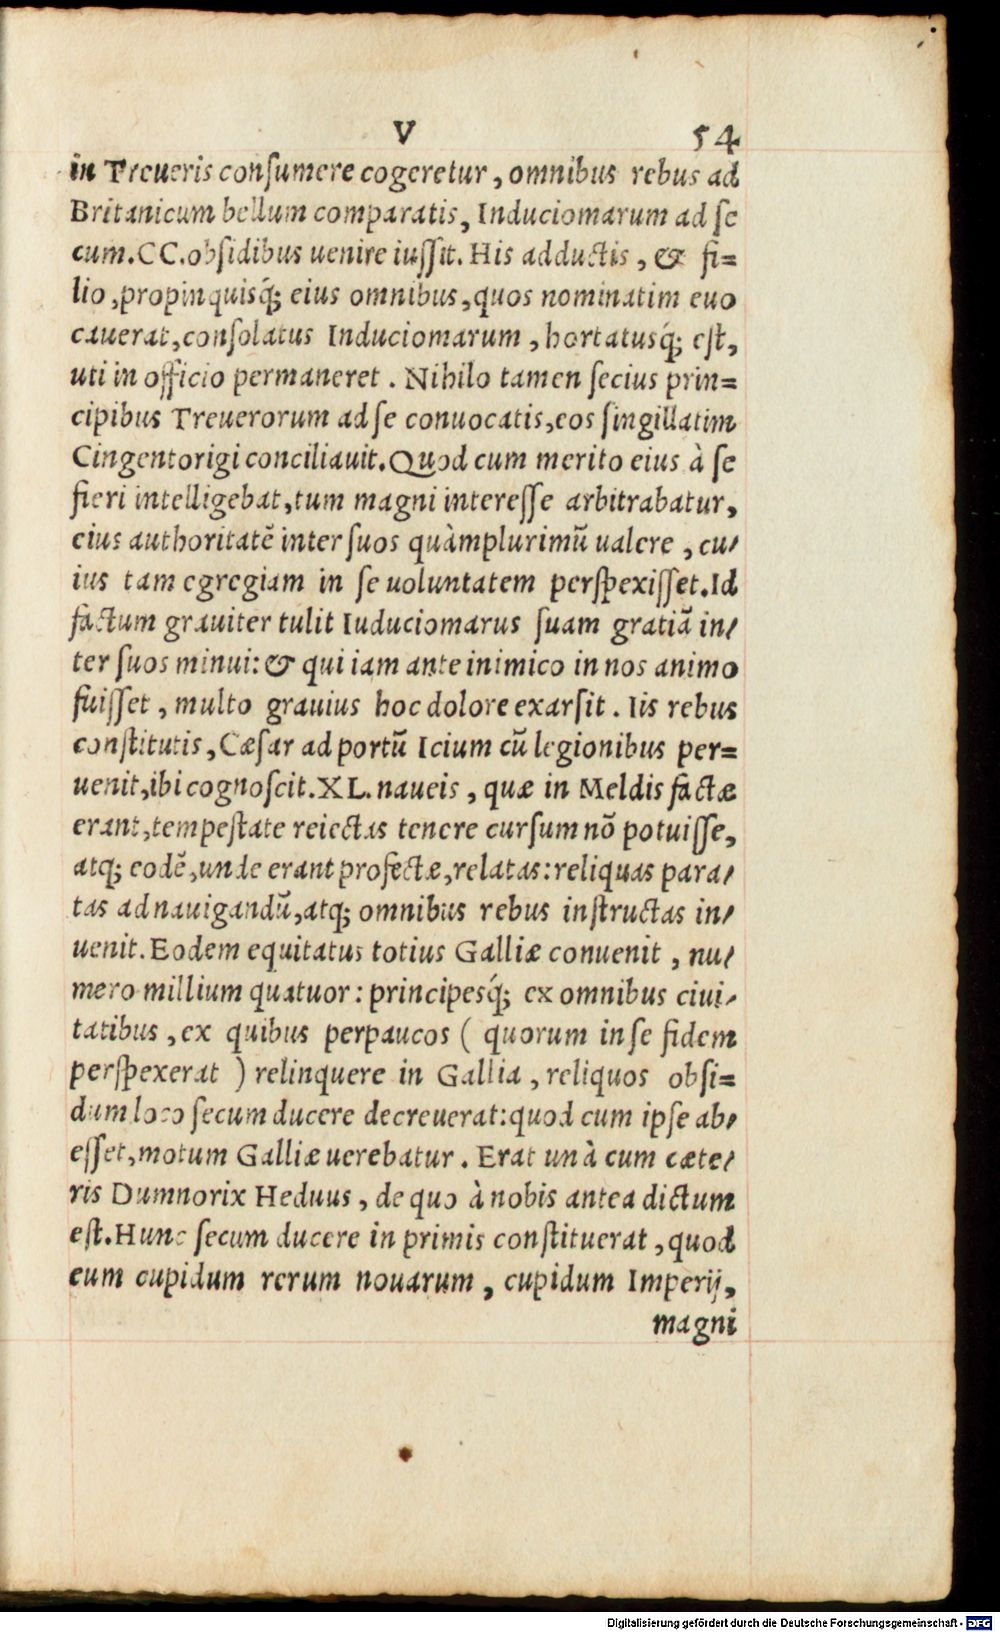 V 54
in Treueris consumere cogeretur, omnibus rebus ad
Britanicum bellum comparatis, Induciomarum ad se
cum.CC.obsidibus uenire iussit. His adductis, & fi=
lio, propinquisq́; eius omnibus, quos nominatim euo
cauerat, consolatus Induciomarum, hortatusq́; est,
uti in officio permaneret. Nihilo tamen secius prin=
cipibus Treuerorum ad se conuocatis, eos singillatim
Cingentorigi conciliauit. Quod cum merito eius à se
fieri intelligebat, tum magni interesse arbitrabatur,
eius authoritatē inter suos quàmplurimū ualere, cu-
ius tam egregiam in se uoluntatem perspexisset. Id
factum grauiter tulit Iuduciomarus suam gratiā in-
ter suos minui: & qui iam ante inimico in nos animo
fuisset, multo grauius hoc dolore exarsit. Iis rebus
constitutis, Cæsar ad portū Icium cū legionibus per=
uenit, ibi cognoscit.XL.naueis, quæ in Meldis factæ
erant, tempestate reiectas tenere cursum nō potuisse,
atq; eodē, unde erant profectæ, relatas: reliquas para-
tas ad nauigandū, atq; omnibus rebus instructas in-
uenit. Eodem equitatus totius Galliæ conuenit, nu-
mero millium quatuor: principesq́; ex omnibus ciui-
tatibus, ex quibus perpaucos ( quorum in se fidem
perspexerat ) relinquere in Gallia, reliquos obsi=
dum loco secum ducere decreuerat: quod cum ipse ab-
esset, motum Galliæ uerebatur. Erat unà cum cæte-
ris Dumnorix Heduus, de quo à nobis antea dictum
est. Hunc secum ducere in primis constituerat, quod
eum cupidum rerum nouarum, cupidum Imperij,
magni
Digitalisierung gefördert durch die Deutsche Forschungsgemeinschaft - DFG